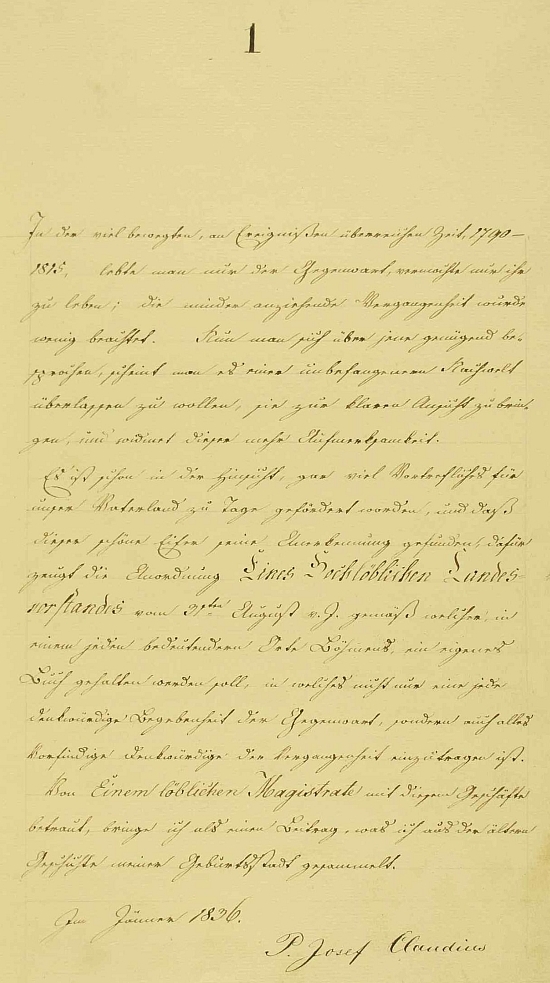 1
In der viel bewegten, an Ereignißen überreichen Zeit, 1790 –
1815, lebte man nur der Gegenwart, vermochte nur ihr
zu leben; die minder anziehende Vergangenheit wurde
wenig beachtet. Nun man sich über jene genügend be-
sprochen, scheint man es einer unbefangenern Nachwelt
überlassen zu wollen, sie zur klaren Ansicht zu brin-
gen, und widmet dieser mehr Aufmerksamkeit.
Es ist schon in der Hinsicht, gar viel Vortrefliches für
unser Vaterland zu Tage gefördert worden, und daß
dieser schöne Eifer seine Anerkennung gefunden, dafür
zeugt die Anordnung Eines Hochlöblichen Landes-
verstandes vom 31ten August v. J. gemäß welcher, in
einem jeden bedeutendern Orte Böhmens, ein eigenes
Buch gehalten werden soll, in welches nicht nur eine jede
denkwürdige Begebenheit der Gegenwart, sondern auch alles
vorfindige Denkwürdige der Vergangenheit einzutragen ist.
Von Einem löblichen Magistrate mit diesem Geschäfte
betraut, bringe ich als einen Beitrag, was ich aus der ältern
Geschichte meiner Geburtsstadt gesammelt.
Im Jänner 1836.
P. Josef Claudius